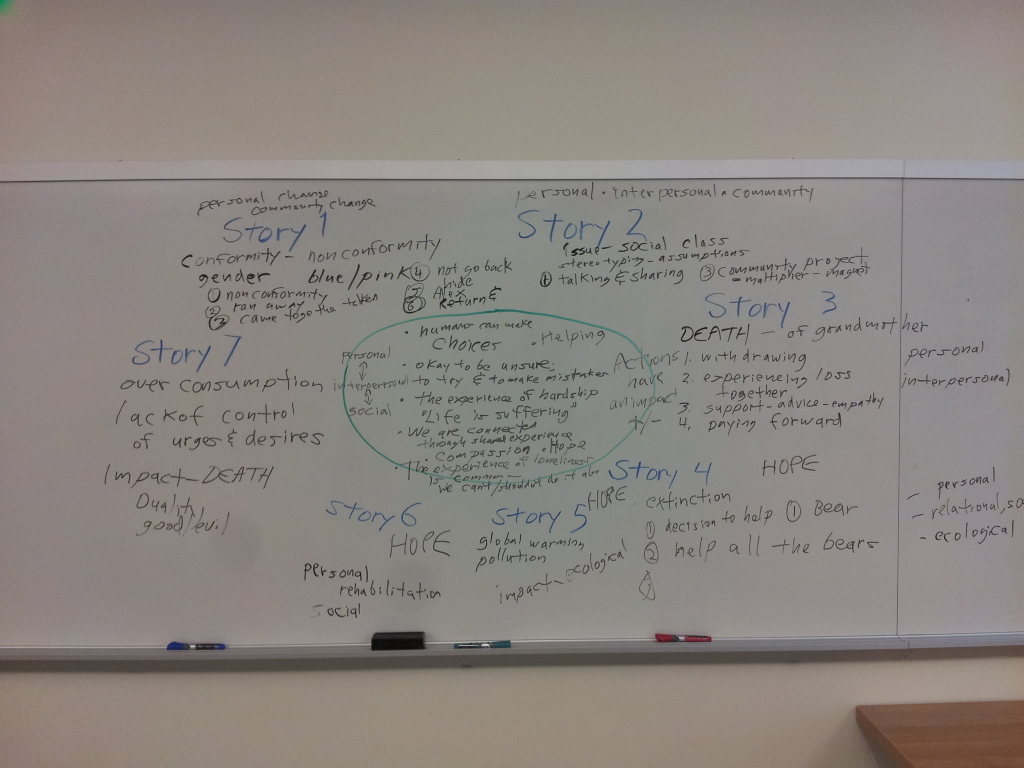 personal change
community change
Story 1
conformity - nonconformity
gender blue/pink
① nonconformity
② ran away
③ came together
taken
④ not go back
hide
⑥ Return &
personal • interpersonal • community
Story 2
issue - social class
stereotyping - assumptions
① talking & sharing
③ community project
- multiplier - magnet
Story 3
DEATH - of grandmother
1. withdrawing
2. experiencing loss
together
3. support - advice - empathy
4. paying forward
personal
interpersonal
Actions
have
an impact
+/-
Story 7
over consumption
lack of control
of urges & desires
Impact - DEATH
Duality
good/evil
• humans can make
choices
• Helping
personal
interpersonal
social
• okay to be unsure;
to try & to make mistakes
• The experience of hardship
"Life is suffering"
• We are connected
through shared experience
• compassion • Hope
• The experience of loneliness
is common -
we can't/shouldn't do it alone
Story 4
HOPE
HOPE - extinction
① decision to help ① Bear
② help all the bears
- personal
- relational, so
- ecological
Story 5
global warming
pollution
impact - ecological
Story 6
HOPE
personal
rehabilitation
social